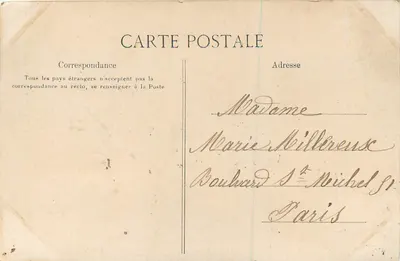 CARTE POSTALE
Correspondance
Tous les pays étrangers n'acceptent pas la
correspondance au recto, se renseigner à la Poste
Adresse
Madame
Marie Millereux
Boulvard St Michel 51
Paris